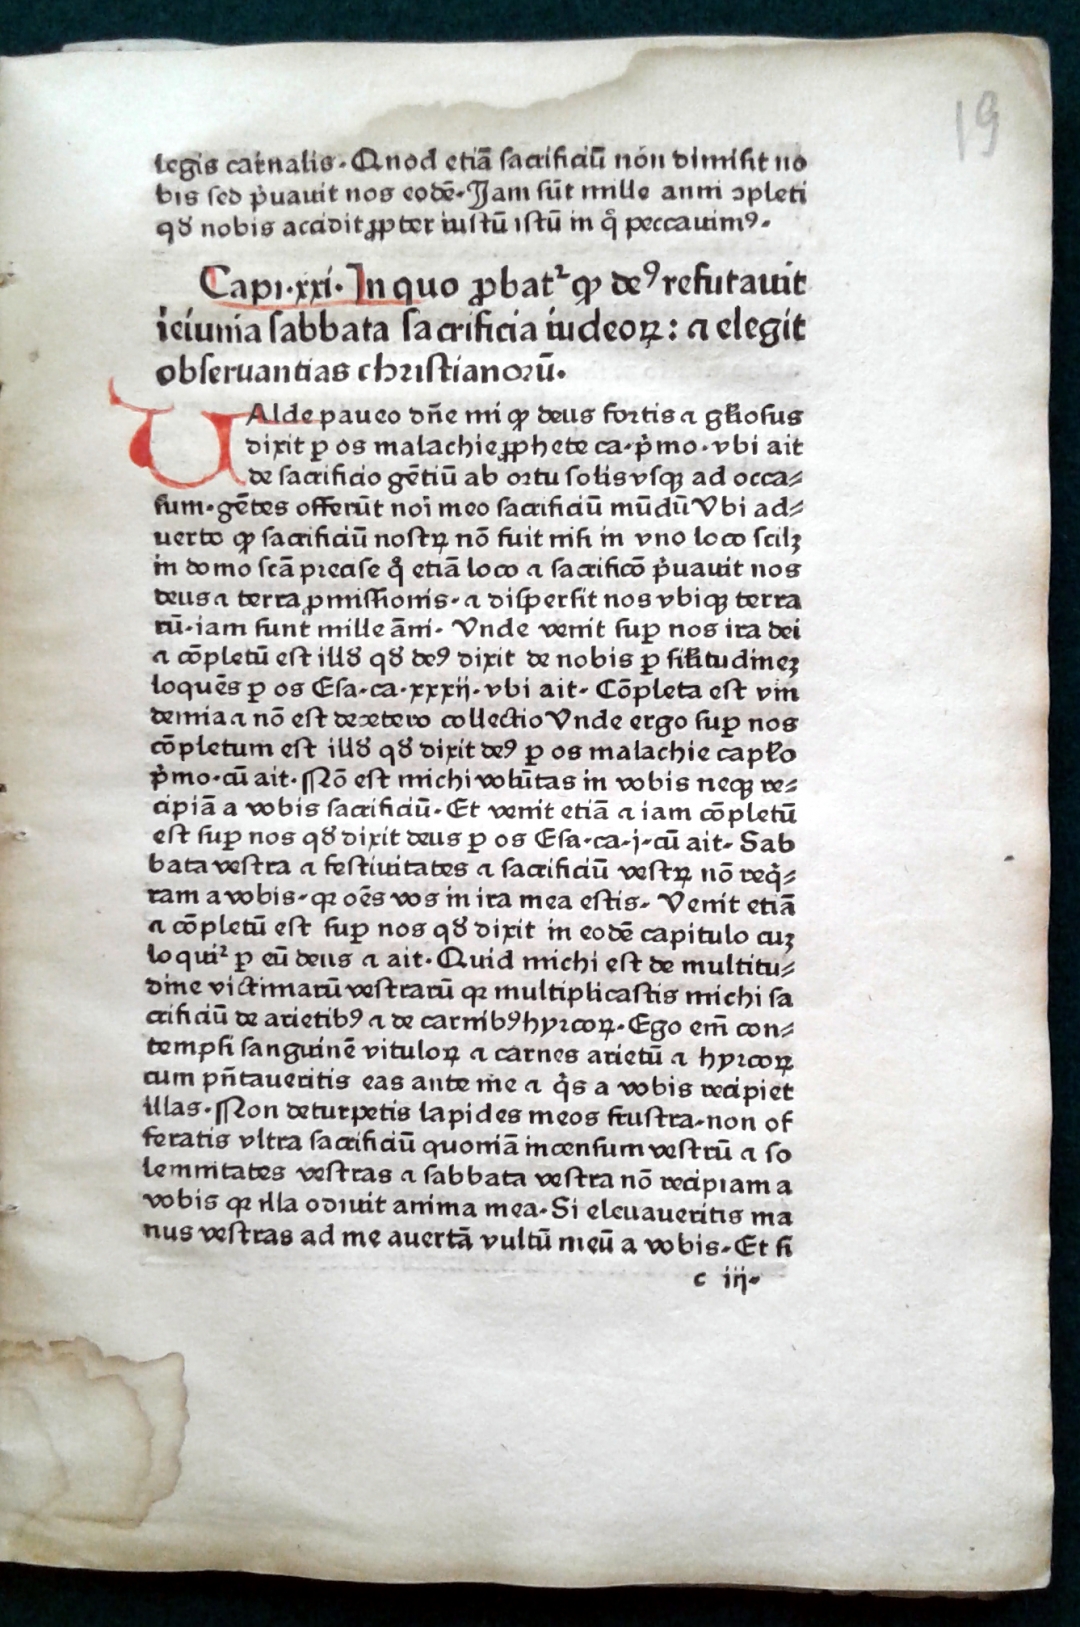 19
legis carnalis. Qnod etiā sacrificiū non dimisit no
bis sed p̓uauit nos eodē. Jam sūt mille anni ↄpleti
qď nobis accidit ꝓpter iustū istū in q̊ peccauimꝰ.
Capi.xxi. In quo ꝓbatᷣ ꝙ deꝰ refutauit
ieiunia sabbata sacrificia iudeoꝝ: ⁊ elegit
obseruantias christianorū.
UAlde paueo dn̄e mi ꝙ deus fortis ⁊ gl̓iosus
dixit ꝑ os malachie ꝓphete ca. p̓mo. vbi ait
de sacrificio gētiū ab ortu solis vsqꝫ ad occa⸗
sum. gētes offerūt noī meo sacrificiū mūdū Vbi ad⸗
uerto ꝙ sacrificiū nostꝝ nō fuit nisi in vno loco scilꝫ
in domo scā precise q̊ etiā loco ⁊ sacrificō p̓uauit nos
deus a terra ꝓmissionis. ⁊ dispersit nos vbiqꝫ terra
rū. iam sunt mille āni. Vnde venit suꝑ nos ira dei
⁊ cōpletū est illď qď deꝰ dixit de nobis ꝑ sil̓itudineꝫ
loquēs ꝑ os Esa. ca. xxxij. vbi ait. Cōpleta est vin
demia ⁊ nō est de cetero collectio Vnde ergo suꝑ nos
cōpletum est illď qď dixit deꝰ ꝑ os malachie capl̓o
p̓mo. cū ait. Nō est michi volūtas in vobis neqꝫ re⸗
cipiā a vobis sacrificiū. Et venit etiā ⁊ iam cōpletū
est suꝑ nos qď dixit deus ꝑ os Esa. ca. j. cū ait. Sab
bata vestra ⁊ festiuitates ⁊ sacrificiū vestꝝ nō req̓⸗
ram a vobis. qꝛ oēs vos in ira mea estis. Venit etiā
⁊ cōpletū est suꝑ nos qď dixit in eodē capitulo cuꝫ
loquiᷣ ꝑ eū deus ⁊ ait. Quid michi est de multitu⸗
dine victimarū vestrarū qꝛ multiplicastis michi sa
crificiū de arietibꝰ ⁊ de carnibꝰ hyrcoꝝ. Ego em̄ con⸗
tempsi sanguinē vituloꝝ ⁊ carnes arietū ⁊ hyrcoꝝ
cum pn̄taueritis eas ante me ⁊ q̓s a vobis recipiet
illas. Non deturpetis lapides meos frustra. non of
feratis vltra sacrificiū quoniā incensum vestrū ⁊ so
lemnitates vestras ⁊ sabbata vestra nō recipiam a
vobis qꝛ illa odiuit anima mea. Si eleuaueritis ma
nus vestras ad me auertā vultū meū a vobis. Et si
c iij.